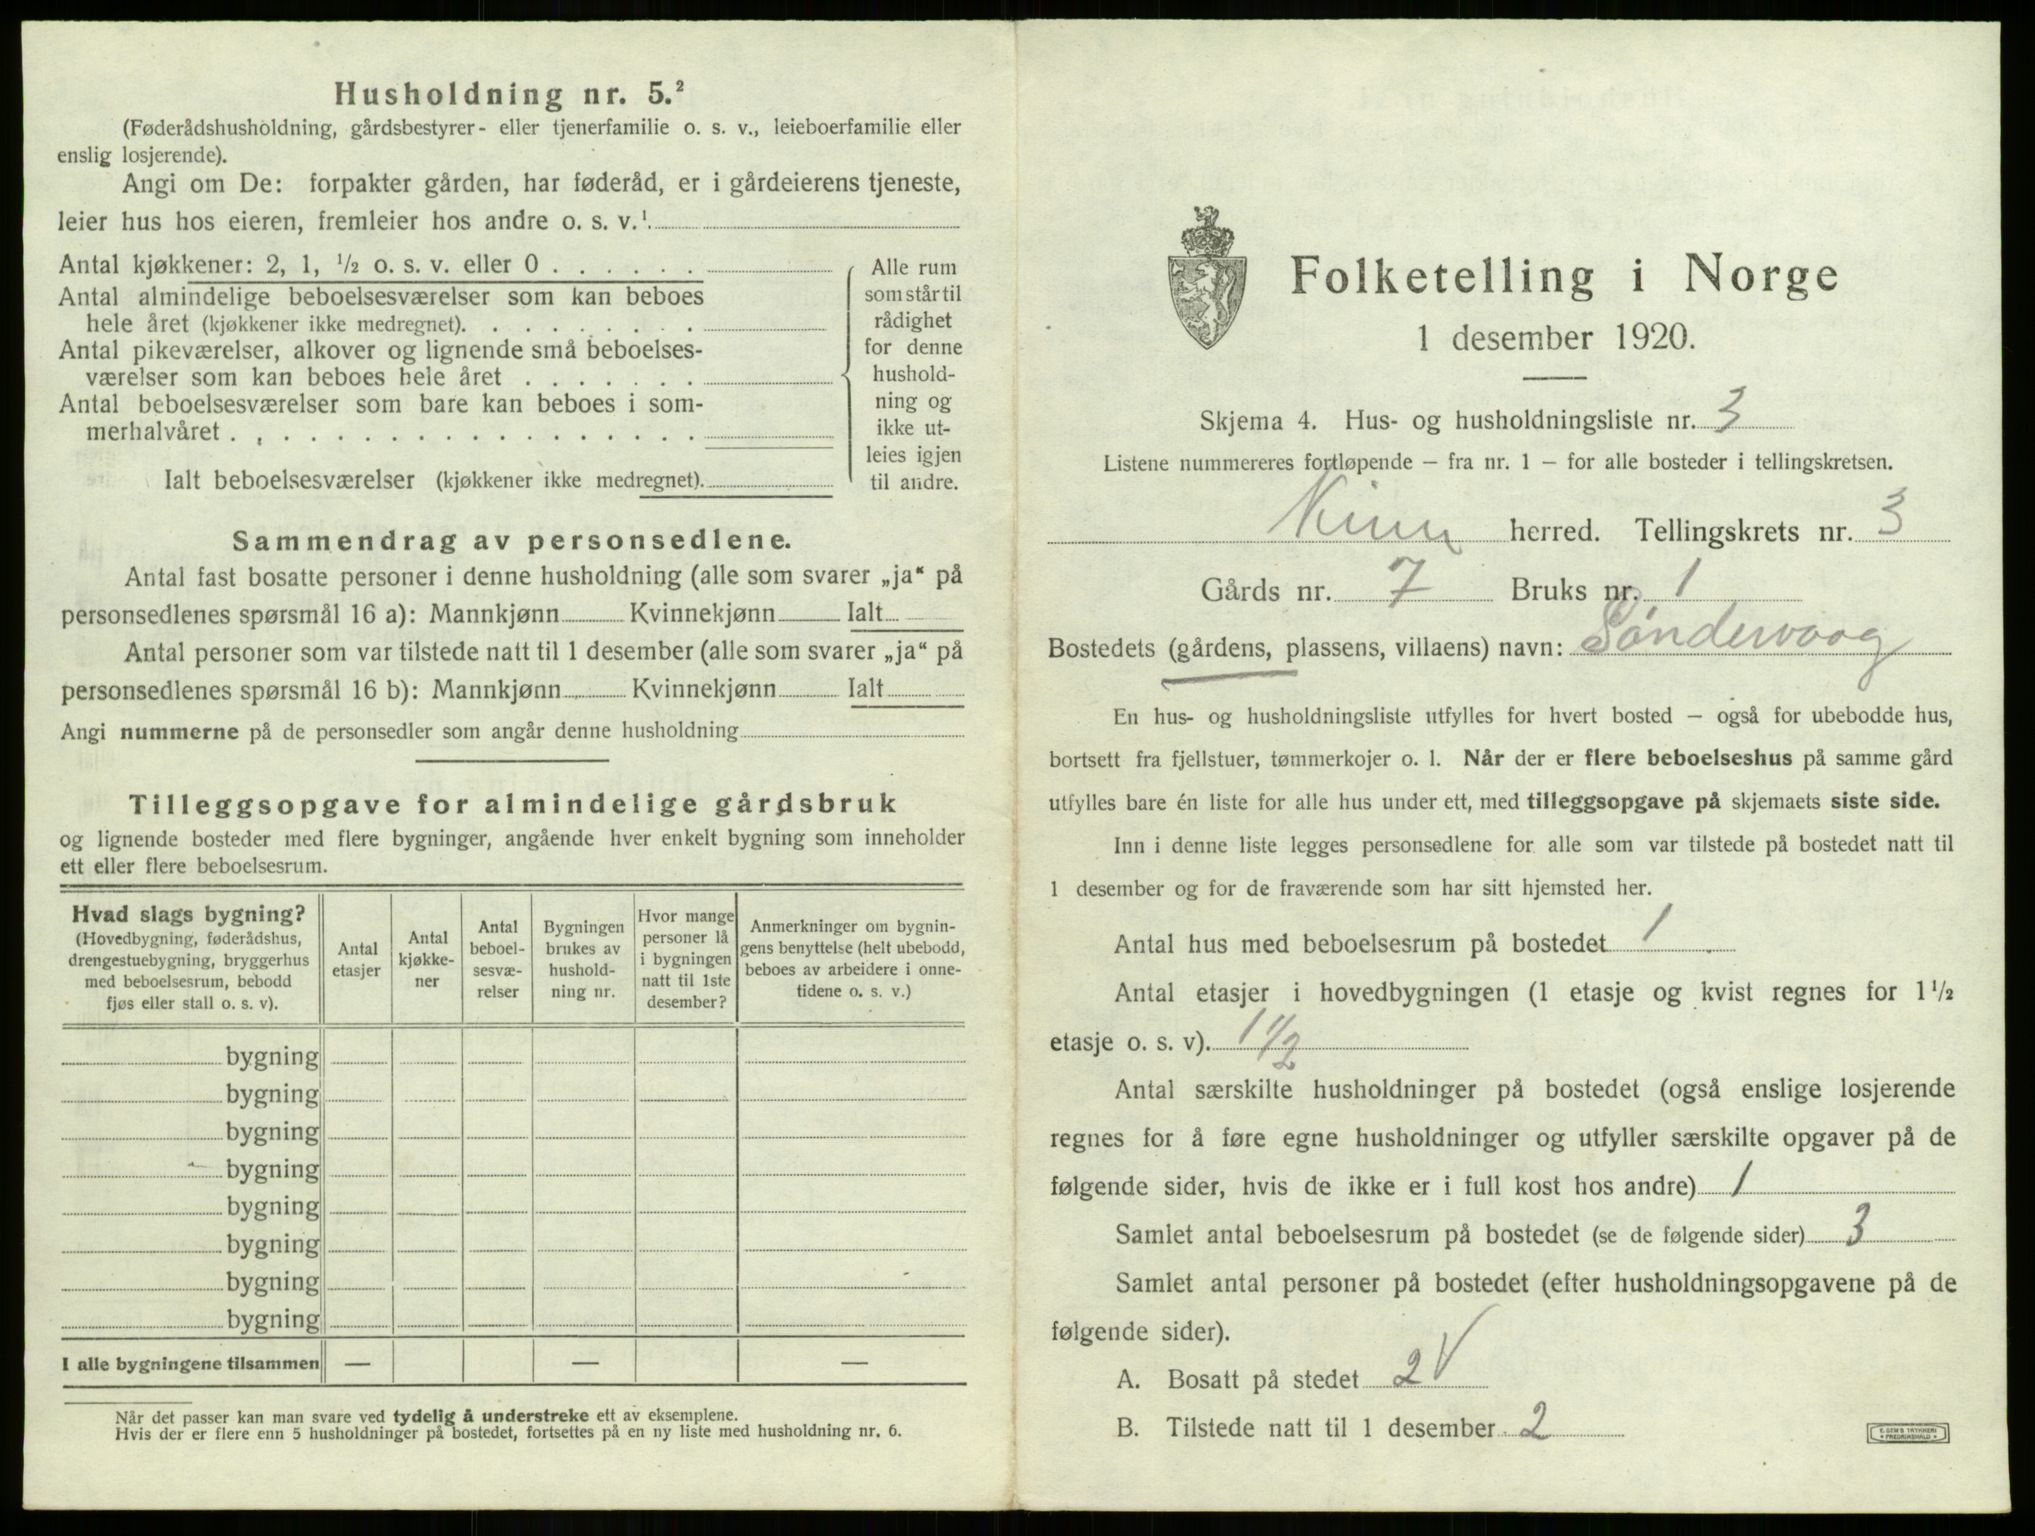 Husholdning nr. 5.²
(Føderådshusholdning, gårdsbestyrer- eller tjenerfamilie o. s. v., leieboerfamilie eller
enslig losjerende).
Angi om De: forpakter gården, har føderåd, er i gårdeierens tjeneste,
leier hus hos eieren, fremleier hos andre o. s. v.¹
Antal kjøkkener: 2, 1, ½ o. s. v. eller 0 . . . . . .
Antal almindelige beboelsesværelser som kan beboes
hele året (kjøkkener ikke medregnet). . . . . . . . .
Antal pikeværelser, alkover og lignende små beboelses-
værelser som kan beboes hele året . . . . . . .
Antal beboelsesværelser som bare kan beboes i som-
merhalvåret . . . . . . . . . . . . . . . . . .
Ialt beboelsesværelser (kjøkkener ikke medregnet).
Alle rum
som står til
rådighet
for denne
hushold-
ning og
ikke ut-
leies igjen
til andre.
Sammendrag av personsedlene.
Antal fast bosatte personer i denne husholdning (alle som svarer „ja“ på
personsedlenes spørsmål 16 a): Mannkjønn Kvinnekjønn Ialt
Antal personer som var tilstede natt til 1 desember (alle som svarer „ja“ på
personsedlenes spørsmål 16 b): Mannkjønn Kvinnekjønn Ialt
Angi nummerne på de personsedler som angår denne husholdning
Tilleggsopgave for almindelige gårdsbruk
og lignende bosteder med flere bygninger, angående hver enkelt bygning som inneholder
ett eller flere beboelsesrum.
Hvad slags bygning?
(Hovedbygning, føderådshus,
drengestuebygning, bryggerhus
med beboelsesrum, bebodd
fjøs eller stall o. s. v).
Antal
etasjer
Antal
kjøkke-
ner
Antal
beboel-
sesvæ-
relser
Bygningen
brukes av
hushold-
ning nr.
Hvor mange
personer lå
i bygningen
natt til 1ste
desember?
Anmerkninger om bygnin-
gens benyttelse (helt ubebodd,
beboes av arbeidere i onne-
tidene o. s. v.)
bygning
bygning
bygning
bygning
bygning
bygning
bygning
bygning
I alle bygningene tilsammen — — —
Når det passer kan man svare ved tydelig å understreke ett av eksemplene.
Hvis der er flere enn 5 husholdninger på bostedet, fortsettes på en ny liste med husholdning nr. 6.
Folketelling i Norge
1 desember 1920.
Skjema 4. Hus- og husholdningsliste nr. 3
Listene nummereres fortløpende – fra nr. 1 – for alle bosteder i tellingskretsen.
Kinn herred. Tellingskrets nr. 3
Gårds nr. 7 Bruks nr. 1
Bostedets (gårdens, plassens, villaens) navn: Søndervaag
En hus- og husholdningsliste utfylles for hvert bosted – også for ubebodde hus,
bortsett fra fjellstuer, tømmerkojer o. l. Når der er flere beboelseshus på samme gård
utfylles bare én liste for alle hus under ett, med tilleggsopgave på skjemaets siste side.
Inn i denne liste legges personsedlene for alle som var tilstede på bostedet natt til
1 desember og for de fraværende som har sitt hjemsted her.
Antal hus med beboelsesrum på bostedet 1
Antal etasjer i hovedbygningen (1 etasje og kvist regnes for 1½
etasje o. s. v). 1 1/2
Antal særskilte husholdninger på bostedet (også enslige losjerende
regnes for å føre egne husholdninger og utfyller særskilte opgaver på de
følgende sider, hvis de ikke er i full kost hos andre) 1
Samlet antal beboelsesrum på bostedet (se de følgende sider) 3
Samlet antal personer på bostedet (efter husholdningsopgavene på de
følgende sider).
A. Bosatt på stedet 2 V
B. Tilstede natt til 1 desember 2
E. SEM'S TRYKKERI
• FREDRIKSHALD •